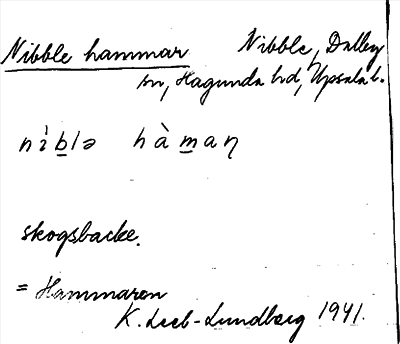 Nibble hammar Nibble, Dalby
sn, Hagunda hd, Upsala l.
nìb̲lə hàm̲aṇ
skogsbacke.
= Hammaren
K. Leeb-Lundberg 1941.